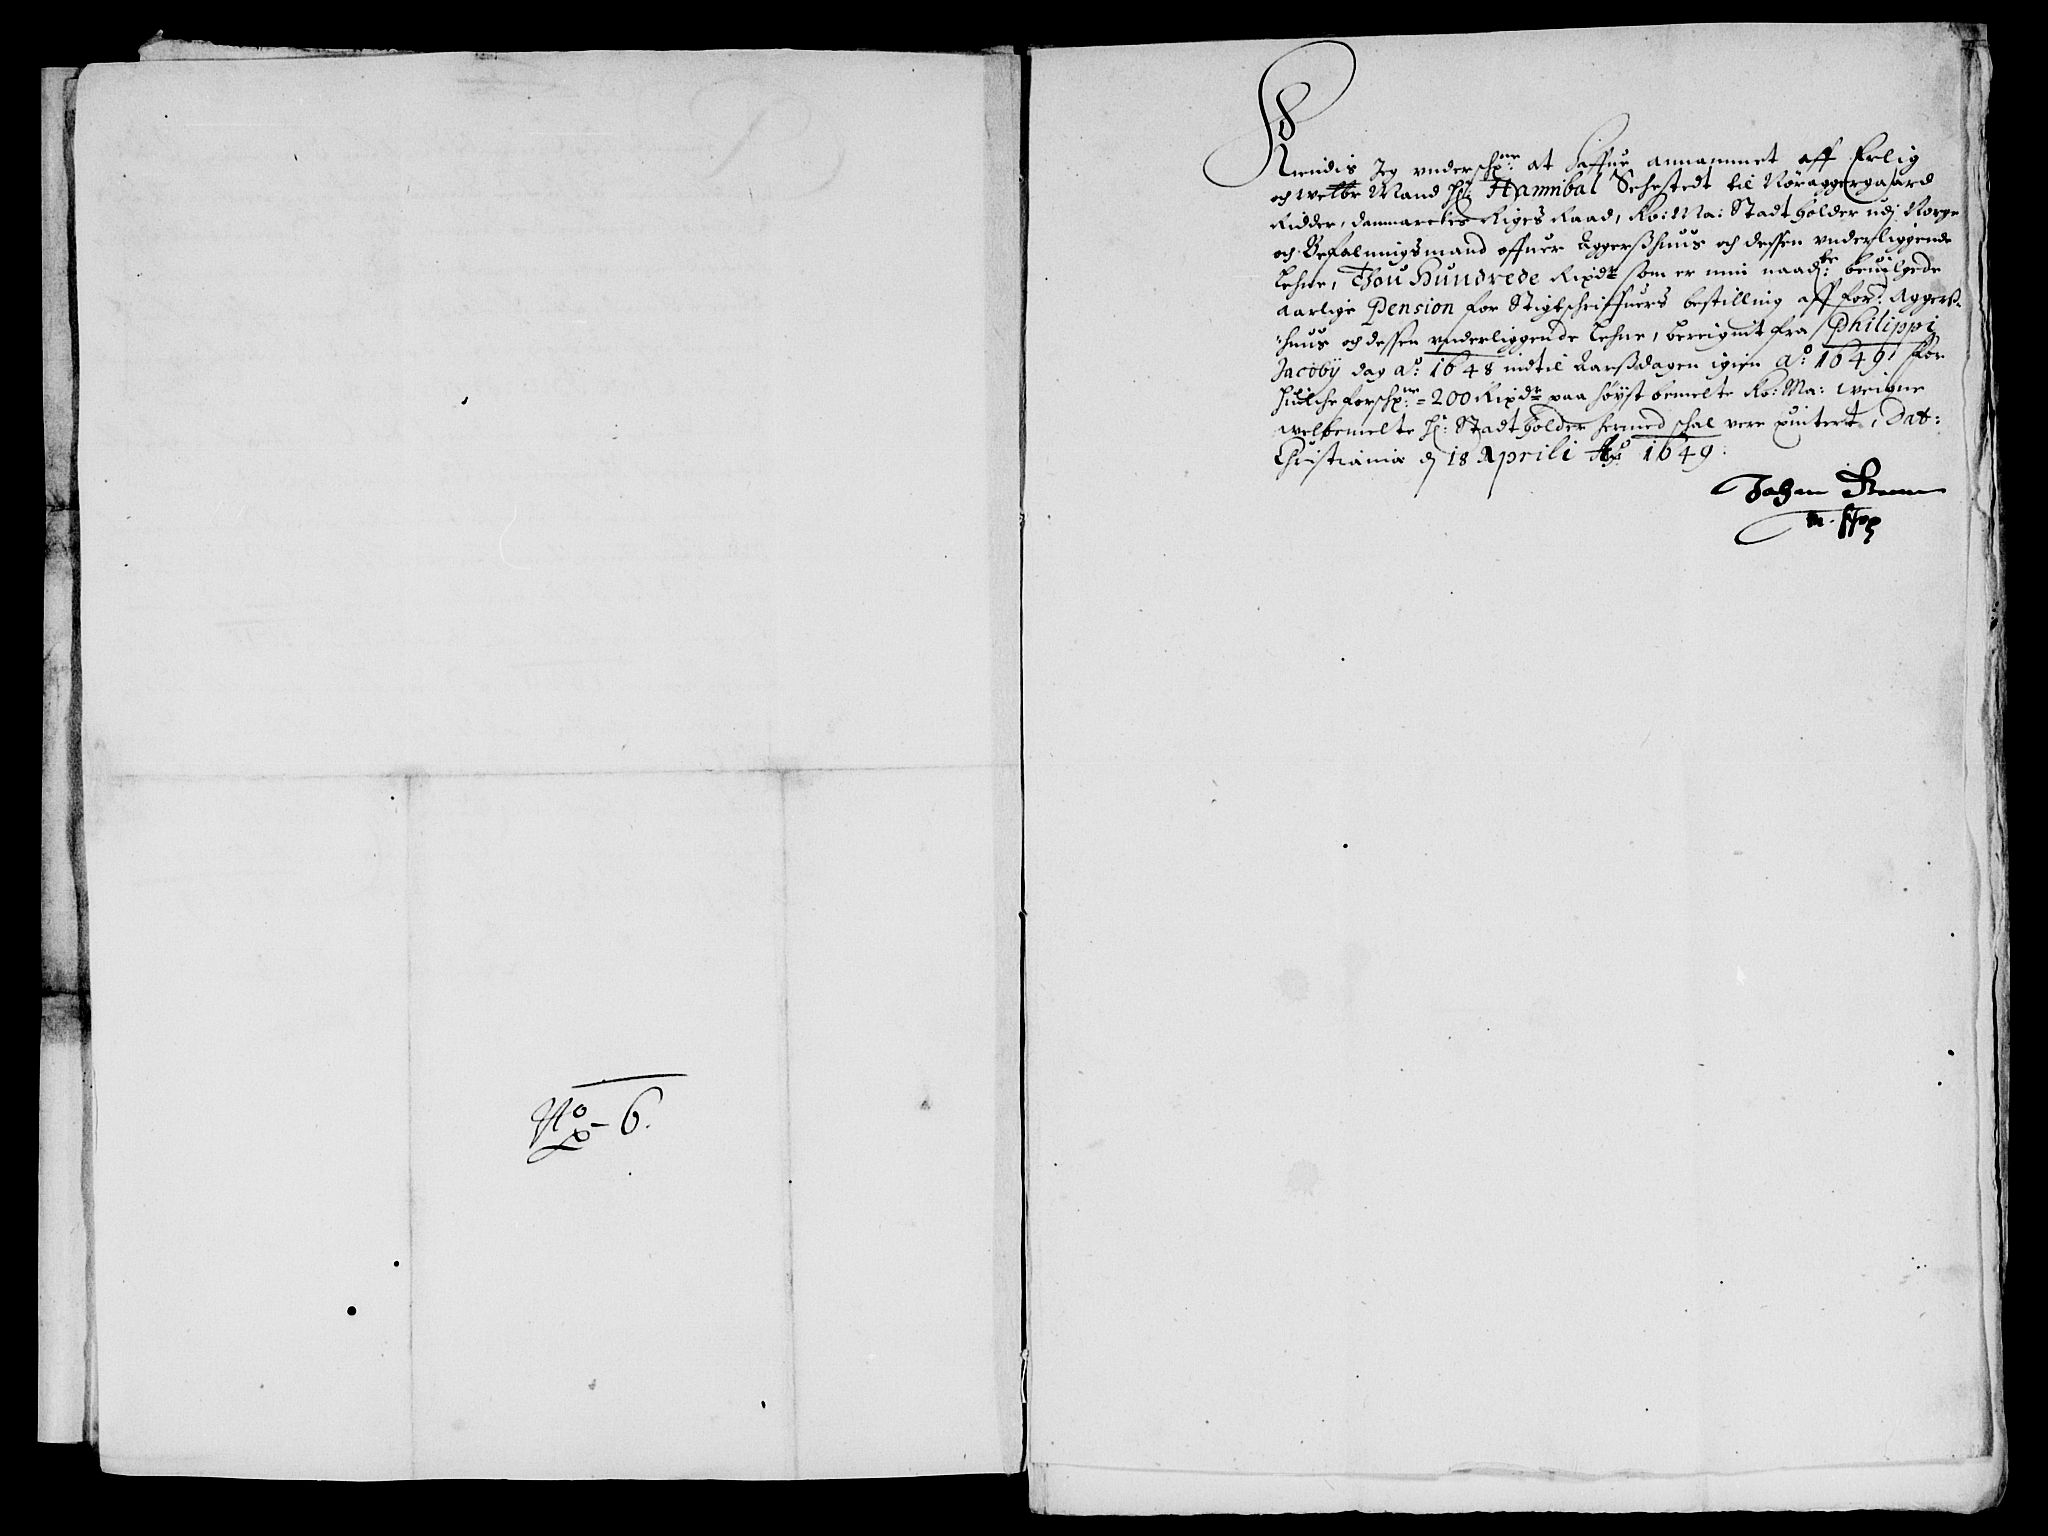 No 6.
Kiendis Jeg vnderschne: at haffue annammet aff Erlig
och welbr Mand Hr: Hannibal Sehestedt til Nöraggergaard
Ridder, Danmarckes Riges Raad, Ko: Ma: Stadtholder udj Norge
och Befalningsmand offuer Aggerßhuus och dessen vnderliggende
Lehne, Thou Hundrede Rixdr som er min naadbe: beuilgede
Aarlige Pension for Stigtschriffuers bestilling aff for: Aggerß-
huus och dessen vnderliggende Lehne, bereignit fra Philippi
Jacobÿ dag Ao: 1648 indtil Aarßdagen igien Ao: 1649, for
huilche forschne: 200 Rixdr paa höyst bemelte Ko: Ma: weigne
welbemelte Hr: Stadtholder hermed schal vere quitert, Dat:
Christiania dj 18 Aprili Ao 1649:
Johan